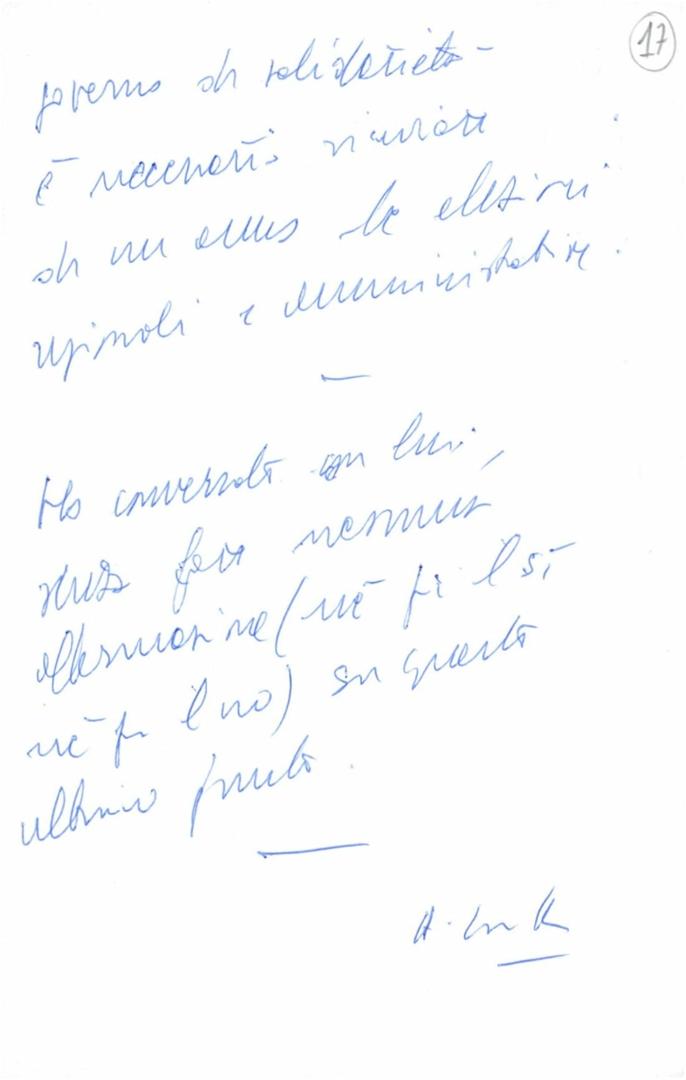 17
governo di solidarietà -
è necessario rinviare
di un anno le elezioni
regionali e amministrative.
—
Ho conversato con lui,
senza fare nessuna
affermazione (né per il sì
né per il no) su questo
ultimo punto.
—